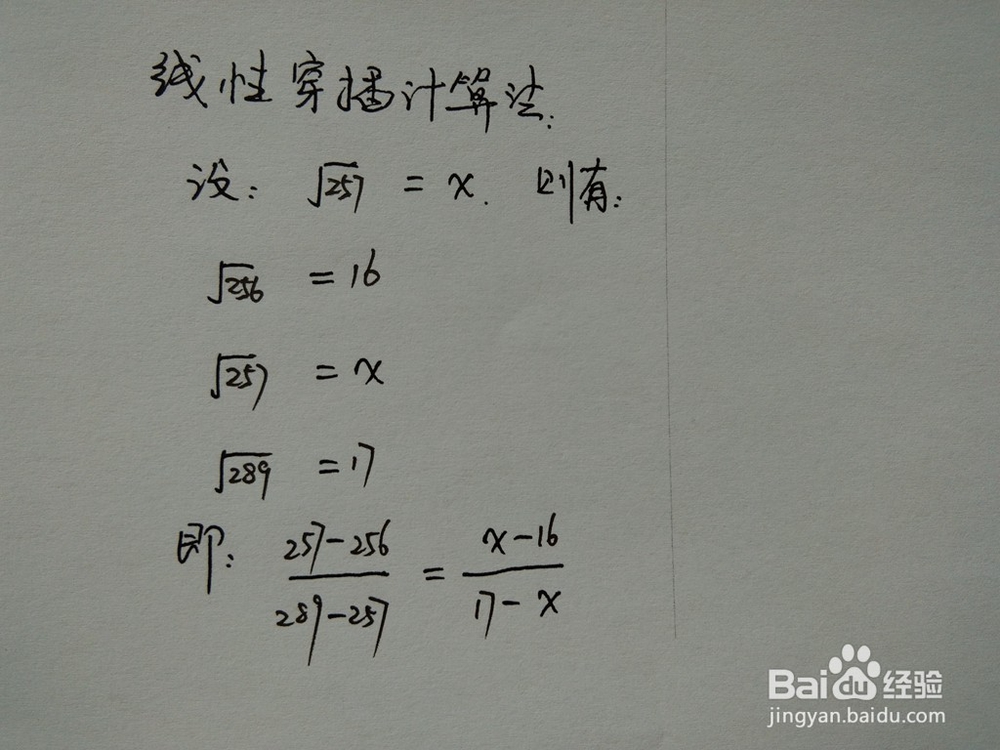 线性穿插计算法:
设: √257 = x. 则有:
√256 = 16
√257 = x
√289 = 17
即: (257-256)/(289-257) = (x-16)/(17-x)
Baidu 经验
jingyan.baidu.com